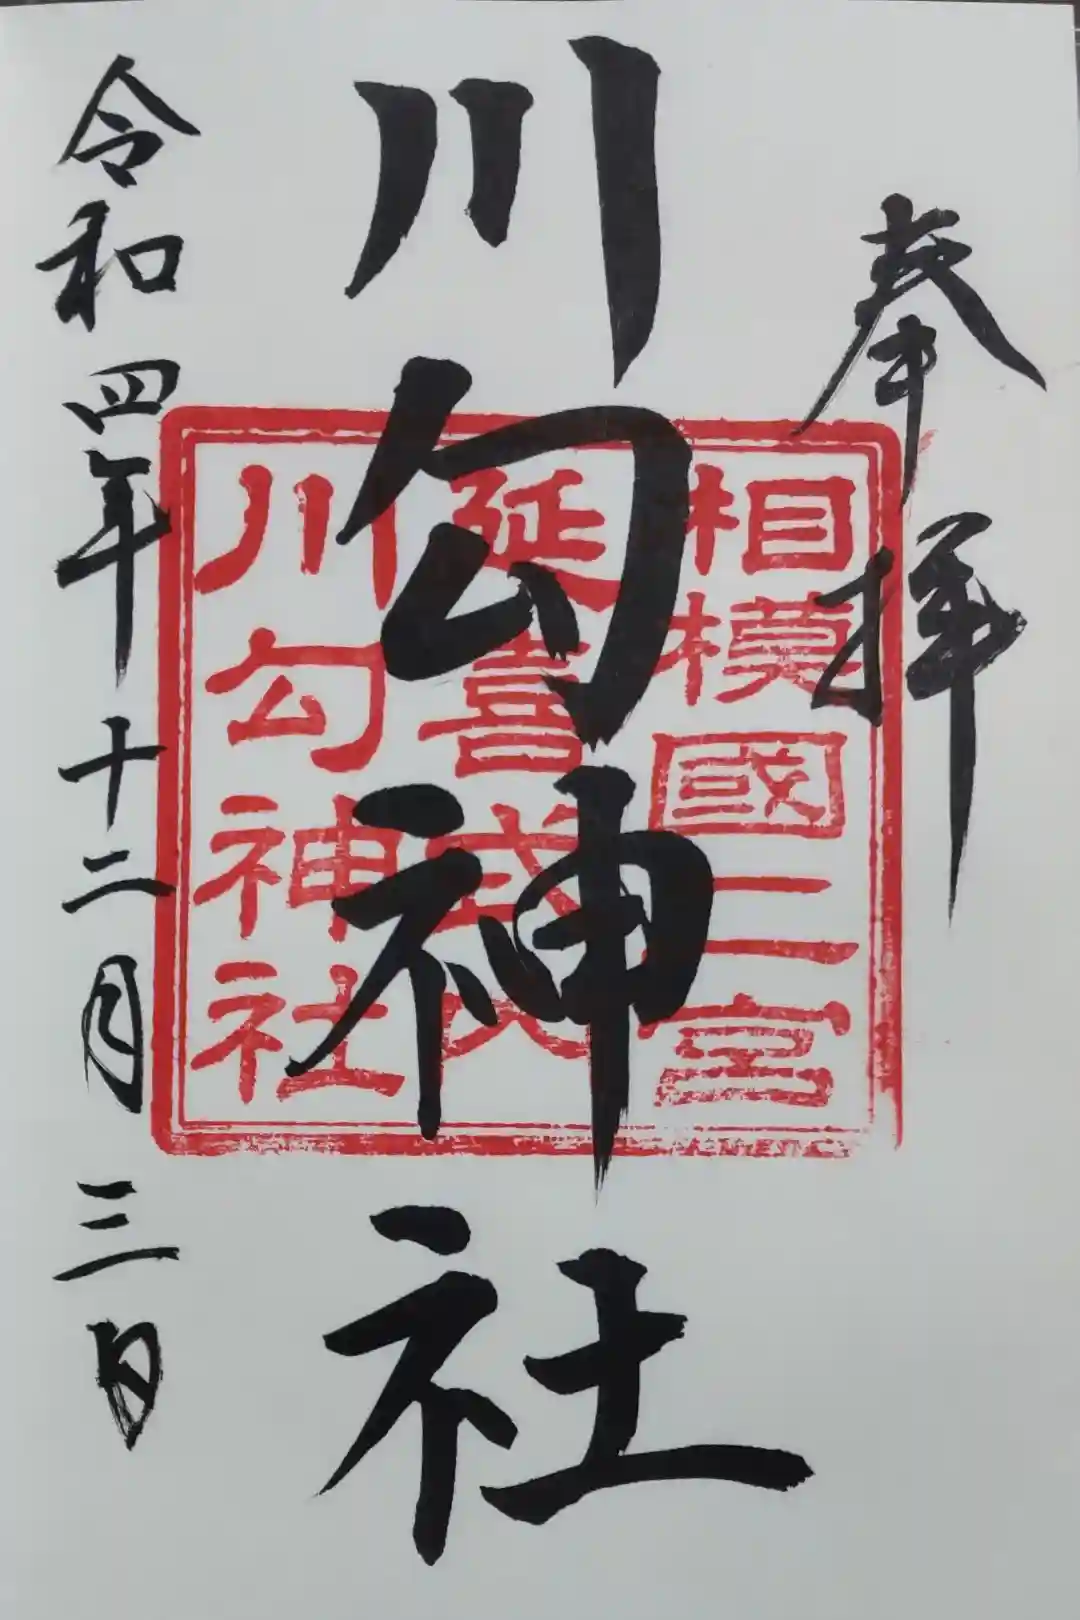 奉拝
相模國二宮
延喜式内
川勾神社
川勾神社
令和四年十二月三日